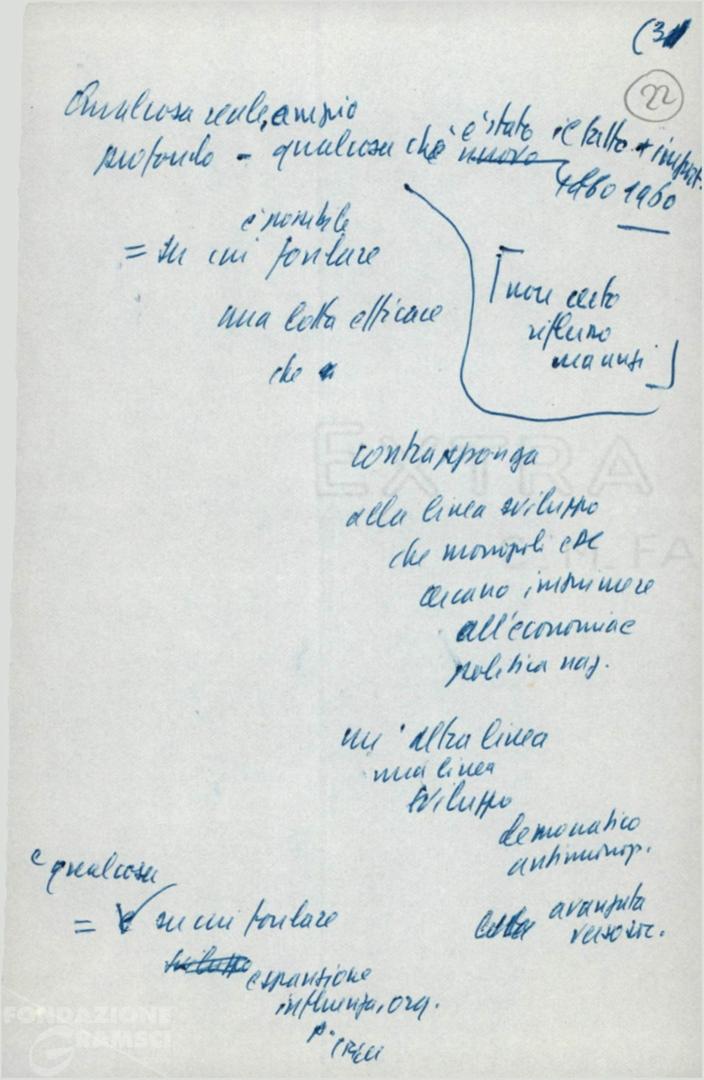 (3
22
Qualcosa reale, ampio
profondo - qualcosa che nuovo
c'è stato il fatto + import.
1960
è possibile
= su cui fondare
una lotta efficace
che
[non certo
riflusso
ma anzi]
contrapponga
alla linea sviluppo
che monopoli e DC
cercano imprimere
all'economia e
politica naz.
un'altra linea
una linea
sviluppo
democratico
antimonop.
avanzata
verso soc.
e qualcosa
= su cui fondare
sviluppo
espansione
influenza, org.
FONDAZIONE
GRAMSCI
EXTRA